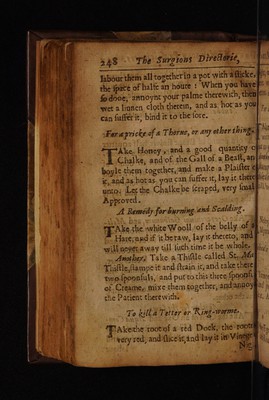 248 The Surgions Directorie,
labour them all together in a pot with a sticke,
the space of halfe an houre: When you have
so done, annoynt your palme therewith, then
wet a linnen cloth therein, and as hot as you
can suffer it, bind it to the sore.
For a pricke of a Thorne, or any other thing.
TAke Honey, and a good quantity
Chalke, and of the Gall of a Beast, an
boyle them together, and make a Plaister
it, and as hot as you can suffer it, lay it there
unto. Let the Chalke be scraped, very small
Approved.
A Remedy for burning and Scalding.
TAke the white Wooll of the belly of a
Hare, and if it be raw, lay it thereto, and
will never away till such time it be whole.
Another. Take a Thistle called St. Ma
Thistle, stampe it and straine it, and take there
two spoonfuls, and put to this three spoonfu
of Creame, mixe them together, and annoy
the Patient therewith.
To kill a Tetter or Ring-worme.
TAke the root of a red Dock, the roote
very red, and slice it, and lay it in Vineg